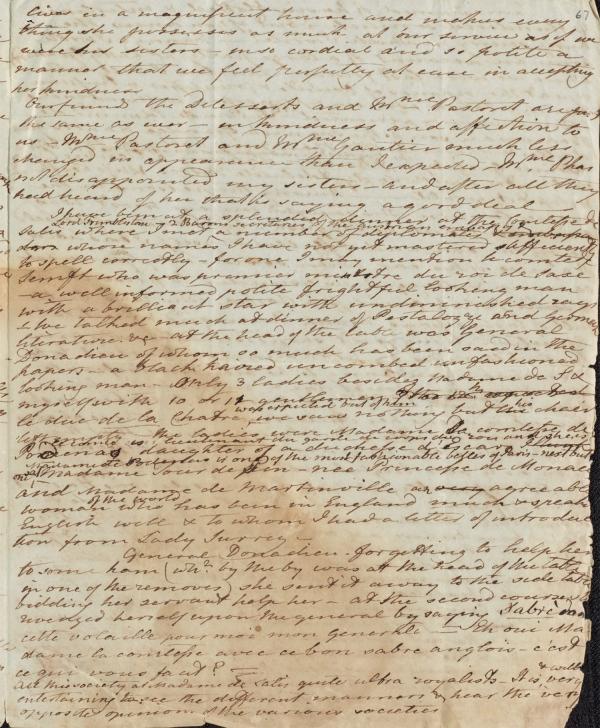 67
lives in a magnificent house and makes every
thing she possesses as much at our service as if we
were his sisters - in so cordial and so polite a
manner that we feel perfectly at ease in accepting
her kindness
Our friends the Delesserts and Mme Pastoret are just
the same as ever - in kindness and affection to
us - Mme Pastoret and Mme Gautier much less
changed in appearance than I expected - Mme
not disappointed my sisters - and after all they
had heard of her that's saying a good deal
I have been at a splendid dinner at the Comtesse de
Lord & 2 Barons secretaries of the Austrian embassy &
Salis where were a number of
dors whose names I have not yet mastered sufficiently
to spell correctly - for one I may mention le comte de
Senfft who was premier ministre du roi de Saxe
- a well informed polite frightful looking man
with a brilliant star with undiminished rays
& we talked much at dinner of Pestalozzi and German
literature &c - at the head of the table was General
Donadieu of whom so much has been said in the
papers - a black haired uncombed unfashioned
looking man - Only 3 ladies besides Madame de S &
myself with 10 or 12 gentlemen
was expected but of him
le duc de la Chatre we saw nothing but his chair
the ladies Madame la comtesse de
daughter of a duchesse de
Madame de is one of the most fashionable belles of Paris - next
Madame de née Princesse de Monaco
and Madame de Martinville a very agreeable
of the world
woman who has been in England much & speaks
English well & to whom I had a letter of introduc
tion from Lady Surrey -
General Donadieu - forgetting to help her
to some ham (whh. by the by was at the head of the table
in one of the removes) she sent it away to the side table
bidding her servant help her - at the second course she
revenged herself upon the general by saying Sabrez moi
cette volaille pour moi mon general - Eh oui Ma
dame la comtesse avec ce bon sabre anglois - c'est
ce qui vous faut? -
All this society at Madame de Salis quite ultra royalists - It is very
entertaining to see the different manners & hear the very
opposite opinions of the various societies